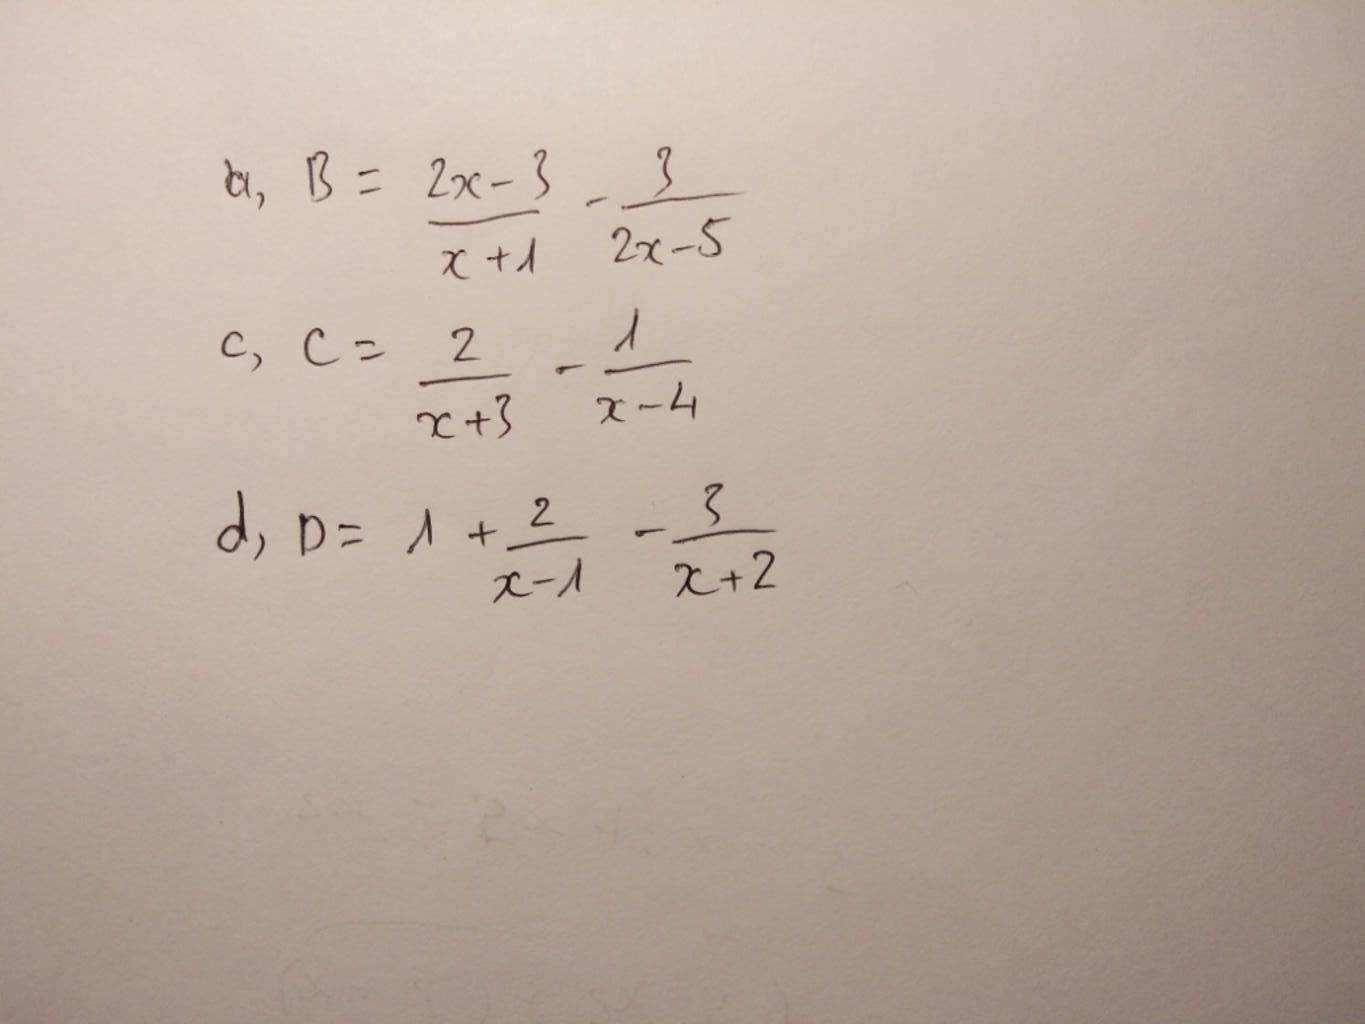 b, B = \frac{2x-3}{x+1} - \frac{3}{2x-5}
c, C = \frac{2}{x+3} - \frac{1}{x-4}
d, D = 1 + \frac{2}{x-1} - \frac{3}{x+2}